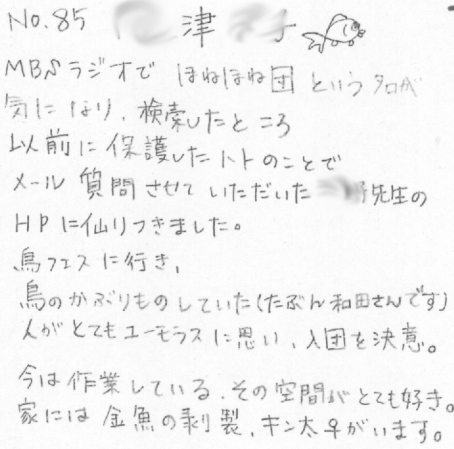 No.85 津 子
MBSラジオで ほねほね団 というタロが
気になり、検索したところ
以前に保護したハトのことで
メール 質問させていただいた 野先生の
HPに仙りつきました。
鳥フェスに行き、
鳥のかぶりものしていた(たぶん和田さんです)
人がとてもユーモラスに思い、入団を決意。
今は作業している、その空間がとても好き。
家には金魚の剥製、キン太早がいます。